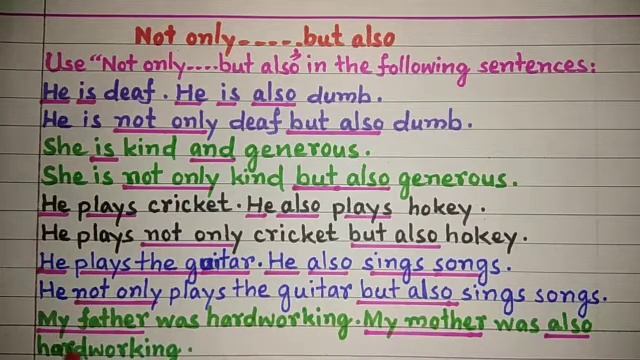 Not only-----but also
Use "Not only----but also" in the following sentences:
He is deaf. He is also dumb.
He is not only deaf but also dumb.
She is kind and generous.
She is not only kind but also generous.
He plays cricket. He also plays hokey.
He plays not only cricket but also hokey.
He plays the guitar. He also sings songs.
He not only plays the guitar but also sings songs.
My father was hardworking. My mother was also
hardworking.